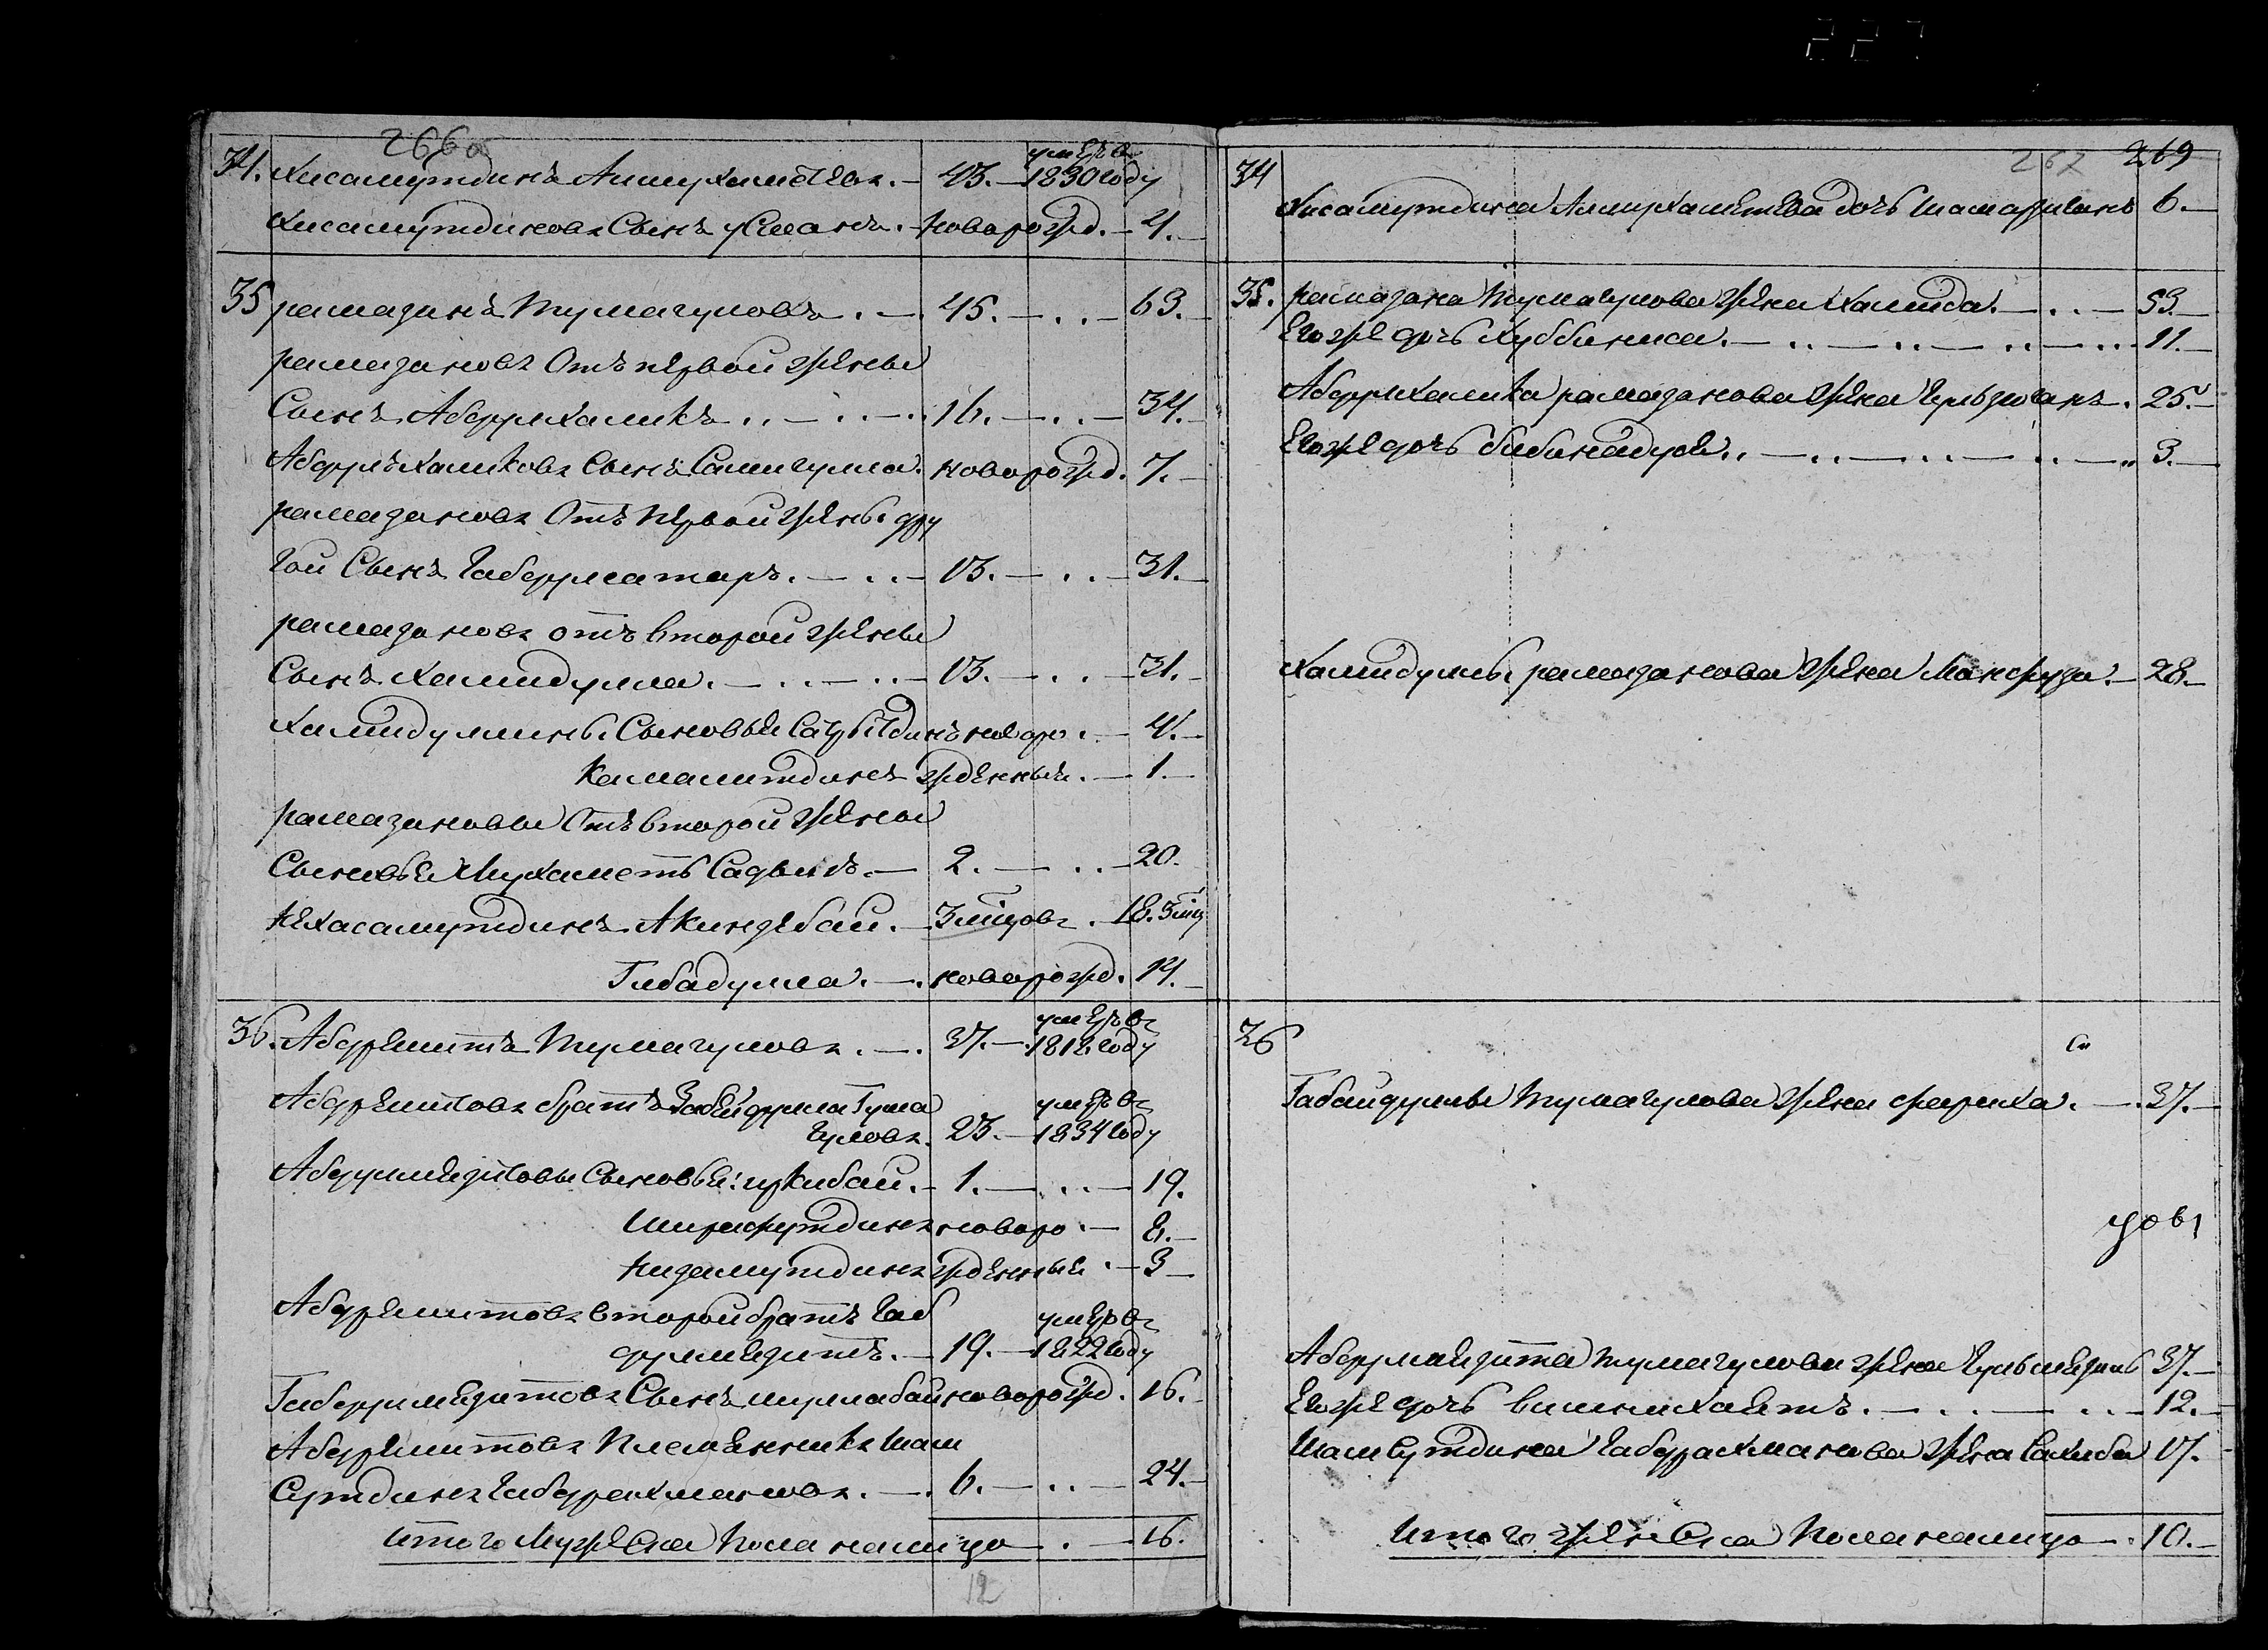 266о
34. Хисамутдинъ Аишухаметевъ. 43. умеръ въ 1830 году
Хисамутдиновъ Сынъ усманъ. новорожд. 4.
35 рамазанъ Тумагуловъ 45. 63.
рамазановъ Отъ первой жены
Сынъ Абдулхаликъ 16. 34.
Абдулъхаликовъ Сынъ Самигулла. новорожд. 7.
рамазановъ Отъ первой жены дру
гой Сынъ Габдулсатаръ. 13. 31.
рамазановъ отъ второй жены
Сынъ Хамидулла. 13. 31.
Хамидуллины Сыновья Садрѣтдинъ новоро 4.
Камалитдинъ жденныя. 1.
рамазановы Отъ второй жены
Сыновья Мухаметь Садыкъ. 2. 20.
Нехасамутдинъ Акинзебай. 3 мѣцовъ. 18. 3 мѣц
Гибадулла. новорожд. 14.
36. Абдрешитъ Тумагуловъ. 37. умеръ въ 1818 году
Абдрешитовъ братъ Забейдулла Тума
гуловъ. 23. умеръ въ 1834 году
Абдулмезитовы Сыновья: иркибай. 1. 19.
Ширафутдинъ новоро 8.
Низамутдинъ жденныя 3
Абдрешитовъ второй братъ Габ
дулмезитъ. 19. умеръ въ 1822 году
Габдулмезитовъ Сынъ мурзабай новорожд. 16.
Абдрешитовъ Племянникъ Шам
Сутдинъ Габдрахмановъ. 6. 24.
итого Мужеска Пола налицо 16.
12
267 269
34
Хисамутдина Аишухаметева дочь Шамаризянъ 6.
35. рамазана Тумагулова жена Халида. 53.
Его же дочь Хуббиниса. 11.
Абдулхалика рамазанова жена Гульзюгаръ. 25.
Его же дочь бибинадуя. 3.
Хамидуллы рамазанова жена Манфуза. 28.
36
Габайдуллы Тумагулова жена фариха. 37.
Абдулмезита Тумагулова жена Гульмезинъ 37.
Его же дочь 12.
Шамсутдина Габдрахманова жена Сахиба 17.
Итого женска Пола налицо 10.